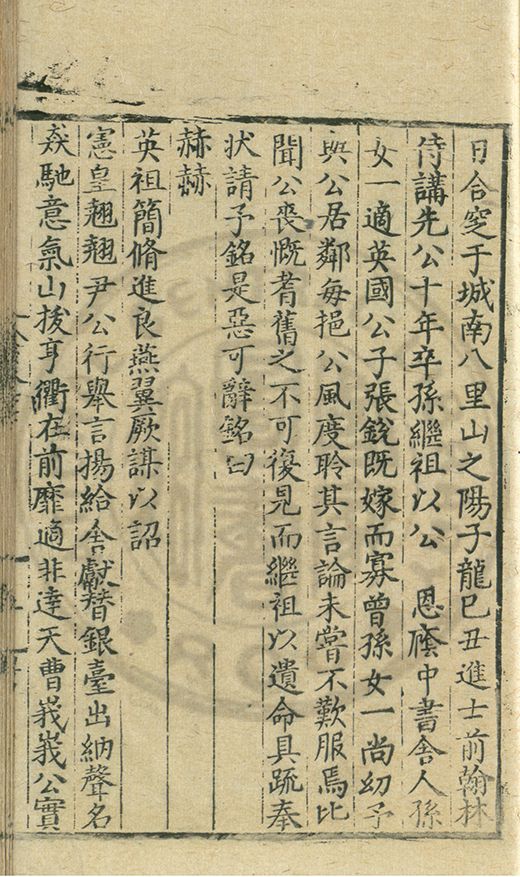 日合窆于城南八里山之陽子龍巳丑進士前翰林
侍講先公十年卒孫繼祖以公　恩廕中書舍人孫
女一適英國公子張銳既嫁而寡曾孫女一尚幼予
與公居鄰每挹公風度聆其言論未嘗不歎服焉比
聞公喪慨耆舊之不可復見而繼祖以遺命具疏奉
狀請予銘是惡可辭銘曰
赫赫
英祖簡脩進良燕翼厥謀以詔
憲皇翹翹尹公行舉言揚給舍獻替銀臺出納聲名
猋馳意氣山拔亨衢在前靡適非達天曹峩峩公實